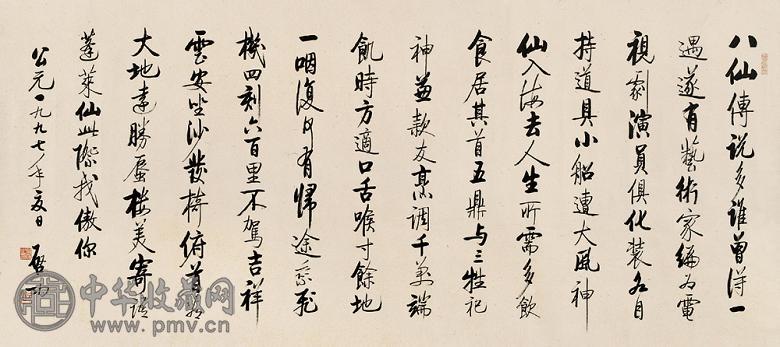 八仙傳說多誰曾得一
遇遂有藝術家編為電
視劇演員俱化裝各自
持道具小船遭大風神
仙入海去人生所需多飲
食居其首五鼎与三牲祀
神兼款友烹調千萬端
飢時方適口舌喉寸餘地
一咽復何有歸途乘飛
機四刻六百里不駕吉祥
雲安坐沙發椅俯首視
大地遠勝蜃樓美寄語
蓬萊仙此際我傲你
公元一九九七年夏日 啟功
中华收藏网
www.pmv.cn